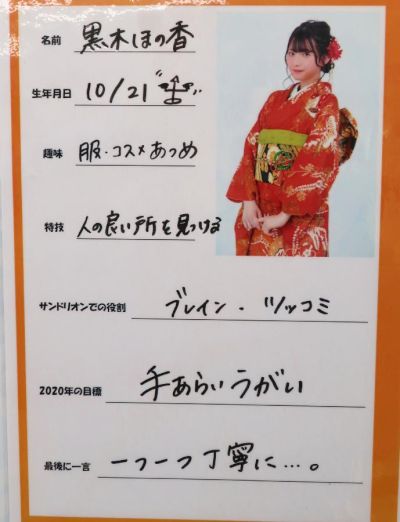 名前 黒木ほの香
生年月日 10/21
趣味 服・コスメあつめ
特技 人の良い所を見つける
サンドリオンでの役割 ブレイン・ツッコミ
2020年の目標 手あらいうがい
最後に一言 一つ一つ丁寧に…。